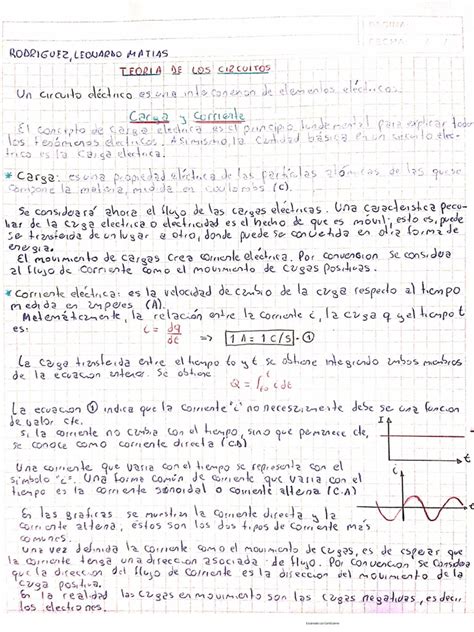 RODRIGUEZ, LEONARDO MATIAS
TEORIA DE LOS CIRCUITOS
Un circuito eléctrico es una interconexion de elementos eléctricos.
Carga y Corriente
El concepto de carga electrica es el principio fundamental para explicar todos
los fenómenos electricos. Asimismo, la cantidad básica en un circuito eléc-
trico es la carga electrica.
* Carga: es una propiedad eléctrica de las partículas atómicas de las que se
compone la materia, medida en coulombs (C).
Se considerará ahora el flujo de las cargas eléctricas. Una caracteristica pecu-
liar de la carga electrica o electricidad es el hecho de que es móvil; esto es, puede
ser transferida de un lugar a otro, donde puede ser convertida en otra forma de
energia.
El movimiento de cargas crea corriente eléctrica. Por convencion se considera
al flujo de corriente como el movimiento de cargas positivas.
* Corriente eléctrica: es la velocidad de cambio de la carga respecto al tiempo
medida en amperes (A).
Matemáticamente, la relación entre la corriente i, la carga q y el tiempo t
es: i = dq/dt => 1 A = 1 C/S - ①
La carga transferida entre el tiempo to y t se obtiene integrando ambos miembros
de la ecuacion anterior. Se obtiene
Q = ∫to t i dt
La ecuacion ① indica que la corriente "i" no necesariamente debe ser una funcion
de valor cte.
Si la corriente no cambia con el tiempo, sino que permanece cte,
se conoce como corriente directa (CD)
I
t
Una corriente que varia con el tiempo se representa con el
simbolo "i". Una forma común de corriente que varia con el
tiempo es la corriente senoidal o corriente alterna (C.A)
i
t
En las graficas se muestran la corriente directa y la
corriente alterna, estos son los dos tipos de corriente más
comunes.
Una vez definida la corriente como el movimiento de cargas, es de esperar que
la corriente tenga una direccion asociada de flujo. Por convencion se considera
que la direccion del flujo de corriente es la direccion del movimiento de la
carga positiva.
En la realidad las cargas en movimiento son las cargas negativas, es decir,
los electrones.